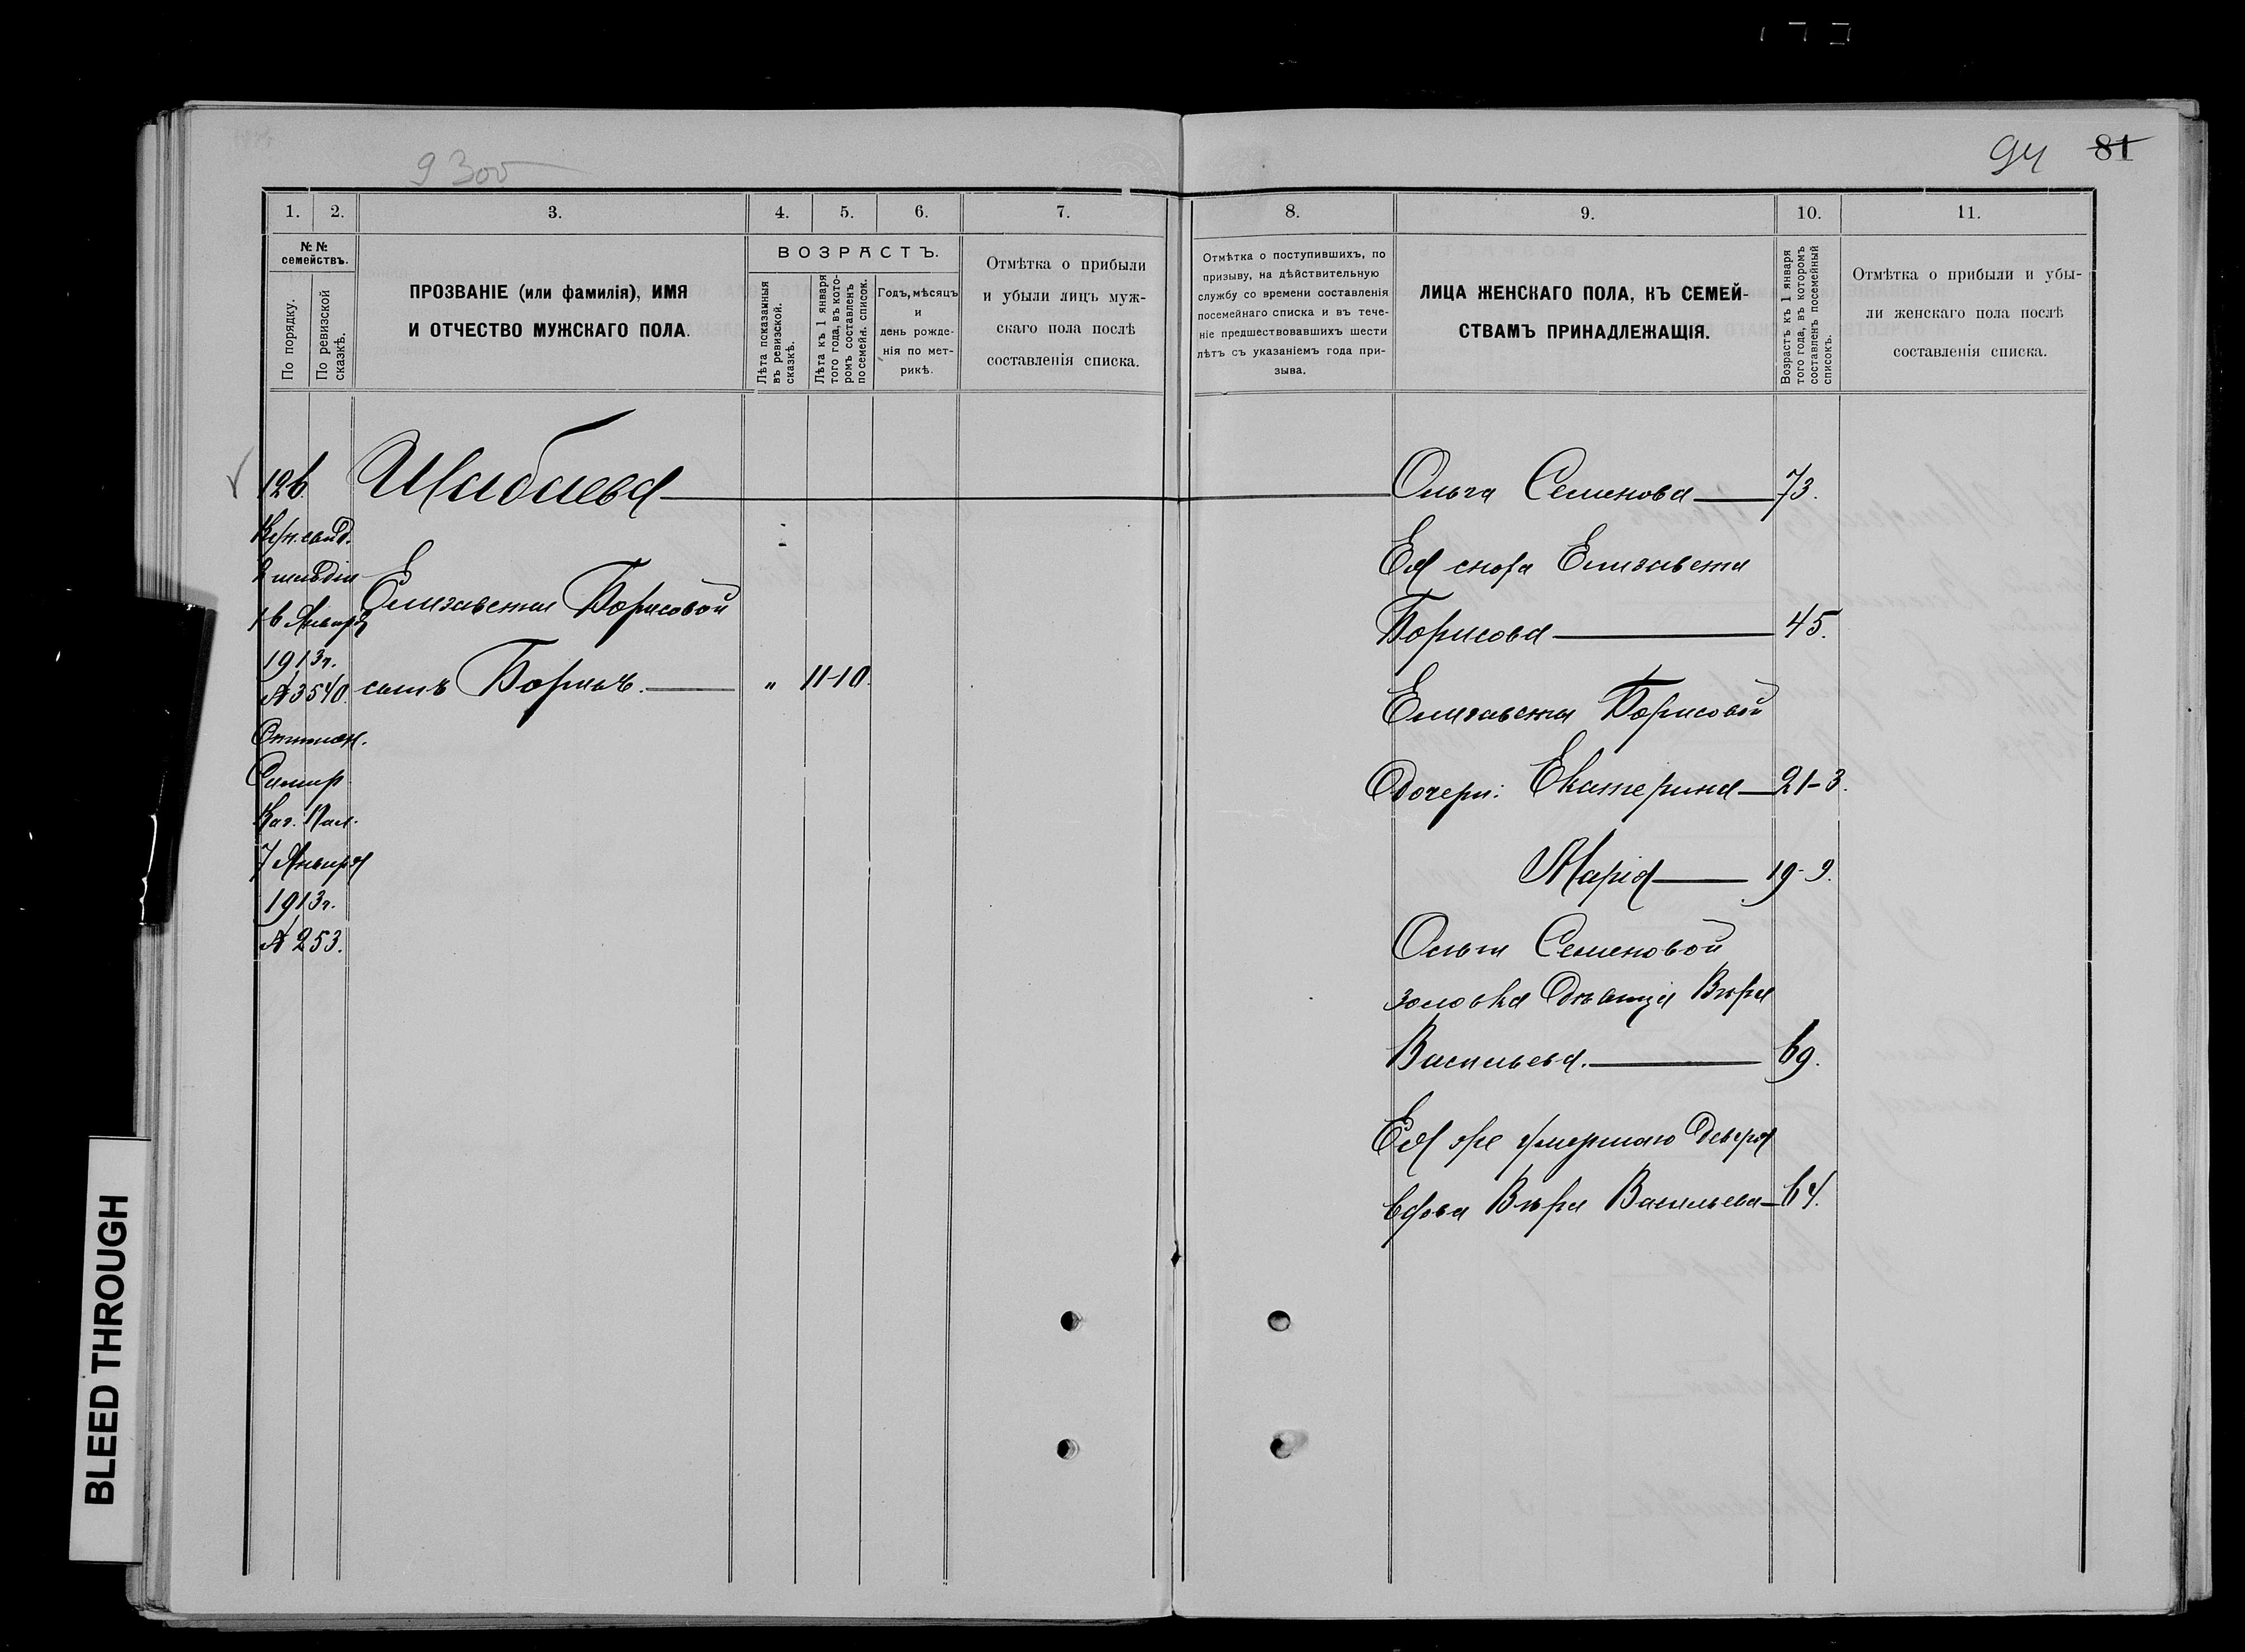 94 81
9300
1. 2. 3. 4. 5. 6. 7. 8. 9. 10. 11.
№№ семействъ.
По порядку.
По ревизской сказкѣ.
ПРОЗВАНІЕ (или фамилія), ИМЯ
И ОТЧЕСТВО МУЖСКАГО ПОЛА.
ВОЗРАСТЪ.
Лѣта показанныя въ ревизской. сказкѣ.
Лѣта къ 1 января того года, въ которомъ составленъ посемейн. список.
Годъ, мѣсяцъ
и
день рожде-
нія по мет-
рикѣ.
Отмѣтка о прибыли
и убыли лицъ муж-
скаго пола послѣ
составленія списка.
Отмѣтка о поступившихъ, по
призыву, на дѣйствительную
службу со времени составленія
посемейнаго списка и въ тече-
ніе предшествовавшихъ шести
лѣтъ съ указаніемъ года при-
зыва.
ЛИЦА ЖЕНСКАГО ПОЛА, КЪ СЕМЕЙ-
СТВАМЪ ПРИНАДЛЕЖАЩІЯ.
Возрастъ къ 1 января того года, въ которомъ составленъ посемейный списокъ.
Отмѣтка о прибыли и убы-
ли женскаго пола послѣ
составленія списка.
126
Шабаева
16 Января
1913 г.
№ 3540.
Каз. Пал.
7 Января
1913 г.
№ 253.
Елизаветы Борисовой
сынъ Борисъ. " 11-10.
Ольга Семенова 73.
Ея сноха Елизавета
Борисова 45.
Елизаветы Борисовой
дочери: Екатерина 21-3.
Марія 19-9.
Ольги Семеновой
золовка дѣвица Вѣра
Васильева. 69.
Ея же умершаго деверя
вдова Вѣра Васильева 64.
BLEED THROUGH